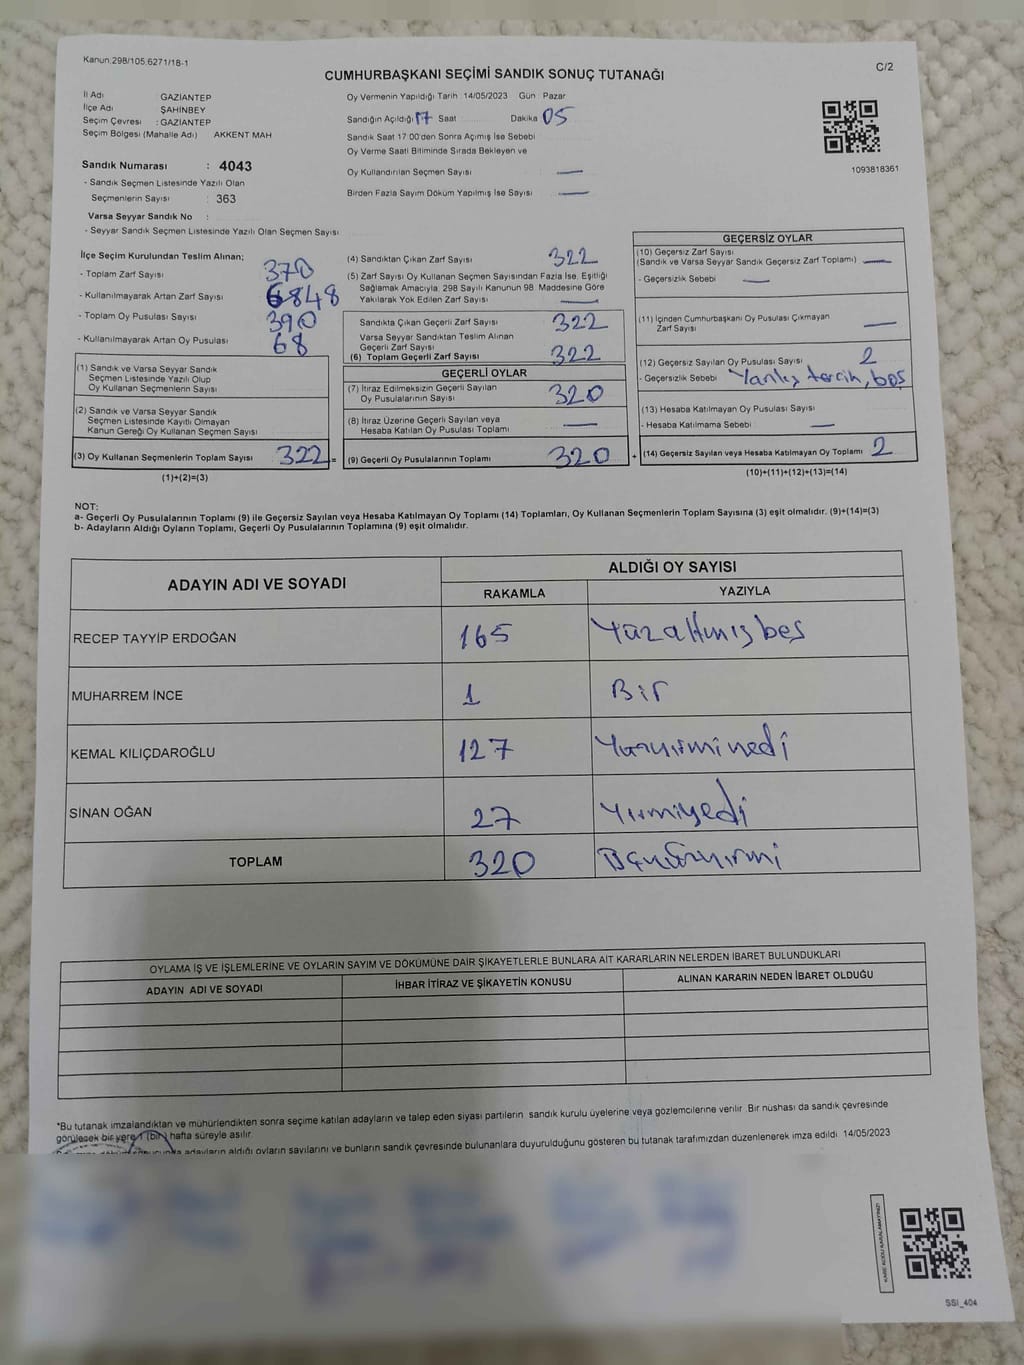 Kanun.298/105.6271/18-1
C/2
CUMHURBAŞKANI SEÇİMİ SANDIK SONUÇ TUTANAĞI
İl Adı GAZİANTEP
İlçe Adı ŞAHİNBEY
Seçim Çevresi : GAZİANTEP
Seçim Bölgesi (Mahalle Adı) AKKENT MAH
Sandık Numarası : 4043
- Sandık Seçmen Listesinde Yazılı Olan
Seçmenlerin Sayısı : 363
Varsa Seyyar Sandık No :
- Seyyar Sandık Seçmen Listesinde Yazılı Olan Seçmen Sayısı
Oy Vermenin Yapıldığı Tarih 14/05/2023 Gün Pazar
Sandığın Açıldığı 17 Saat Dakika 05
Sandık Saat 17:00'den Sonra Açımış İse Sebebi
Oy Verme Saati Bitiminde Sırada Bekleyen ve
Oy Kullandırılan Seçmen Sayısı —
Birden Fazla Sayım Döküm Yapılmış İse Sayısı —
1093818361
İlçe Seçim Kurulundan Teslim Alınan;
- Toplam Zarf Sayısı 370
- Kullanılmayarak Artan Zarf Sayısı 6848
- Toplam Oy Pusulası Sayısı 390
- Kullanılmayarak Artan Oy Pusulası 68
(1) Sandık ve Varsa Seyyar Sandık
Seçmen Listesinde Yazılı Olup
Oy Kullanan Seçmenlerin Sayısı
(2) Sandık ve Varsa Seyyar Sandık
Seçmen Listesinde Kayıtlı Olmayan
Kanun Gereği Oy Kullanan Seçmen Sayısı
(3) Oy Kullanan Seçmenlerin Toplam Sayısı 322 =
(1)+(2)=(3)
(4) Sandıktan Çıkan Zarf Sayısı 322
(5) Zarf Sayısı Oy Kullanan Seçmen Sayısından Fazla İse, Eşitliği
Sağlamak Amacıyla, 298 Sayılı Kanunun 98. Maddesine Göre
Yakılarak Yok Edilen Zarf Sayısı —
Sandıkta Çıkan Geçerli Zarf Sayısı 322
Varsa Seyyar Sandıktan Teslim Alınan
Geçerli Zarf Sayısı
(6) Toplam Geçerli Zarf Sayısı 322
GEÇERLİ OYLAR
(7) İtiraz Edilmeksizin Geçerli Sayılan
Oy Pusulalarının Sayısı 320
(8) İtiraz Üzerine Geçerli Sayılan veya
Hesaba Katılan Oy Pusulası Toplamı —
(9) Geçerli Oy Pusulalarının Toplamı 320 +
GEÇERSİZ OYLAR
(10) Geçersiz Zarf Sayısı
(Sandık ve Varsa Seyyar Sandık Geçersiz Zarf Toplamı) —
- Geçersizlik Sebebi —
(11) İçinden Cumhurbaşkanı Oy Pusulası Çıkmayan
Zarf Sayısı —
(12) Geçersiz Sayılan Oy Pusulası Sayısı 2
- Geçersizlik Sebebi Yanlış tercih, boş
(13) Hesaba Katılmayan Oy Pusulası Sayısı
- Hesaba Katılmama Sebebi —
(14) Geçersiz Sayılan veya Hesaba Katılmayan Oy Toplamı 2
(10)+(11)+(12)+(13)=(14)
NOT:
a- Geçerli Oy Pusulalarının Toplamı (9) ile Geçersiz Sayılan veya Hesaba Katılmayan Oy Toplamı (14) Toplamları, Oy Kullanan Seçmenlerin Toplam Sayısına (3) eşit olmalıdır. (9)+(14)=(3)
b- Adayların Aldığı Oyların Toplamı, Geçerli Oy Pusulalarının Toplamına (9) eşit olmalıdır.
ADAYIN ADI VE SOYADI ALDIĞI OY SAYISI
RAKAMLA YAZIYLA
RECEP TAYYİP ERDOĞAN 165 Yüzaltmışbeş
MUHARREM İNCE 1 Bir
KEMAL KILIÇDAROĞLU 127
SİNAN OĞAN 27 Yirmiyedi
TOPLAM 320
OYLAMA İŞ VE İŞLEMLERİNE VE OYLARIN SAYIM VE DÖKÜMÜNE DAİR ŞİKAYETLERLE BUNLARA AİT KARARLARIN NELERDEN İBARET BULUNDUKLARI
ADAYIN ADI VE SOYADI İHBAR İTİRAZ VE ŞİKAYETİN KONUSU ALINAN KARARIN NEDEN İBARET OLDUĞU
*Bu tutanak imzalandıktan ve mühürlendikten sonra seçime katılan adayların ve talep eden siyasi partilerin sandık kurulu üyelerine veya gözlemcilerine verilir. Bir nüshası da sandık çevresinde
görülecek bir yere 1 (bir) hafta süreyle asılır.
adayların aldığı oyların sayılarını ve bunların sandık çevresinde bulunanlara duyurulduğunu gösteren bu tutanak tarafımızdan düzenlenerek imza edildi 14/05/2023
KARE KODU KARALAMAYINIZ!
SSI_404